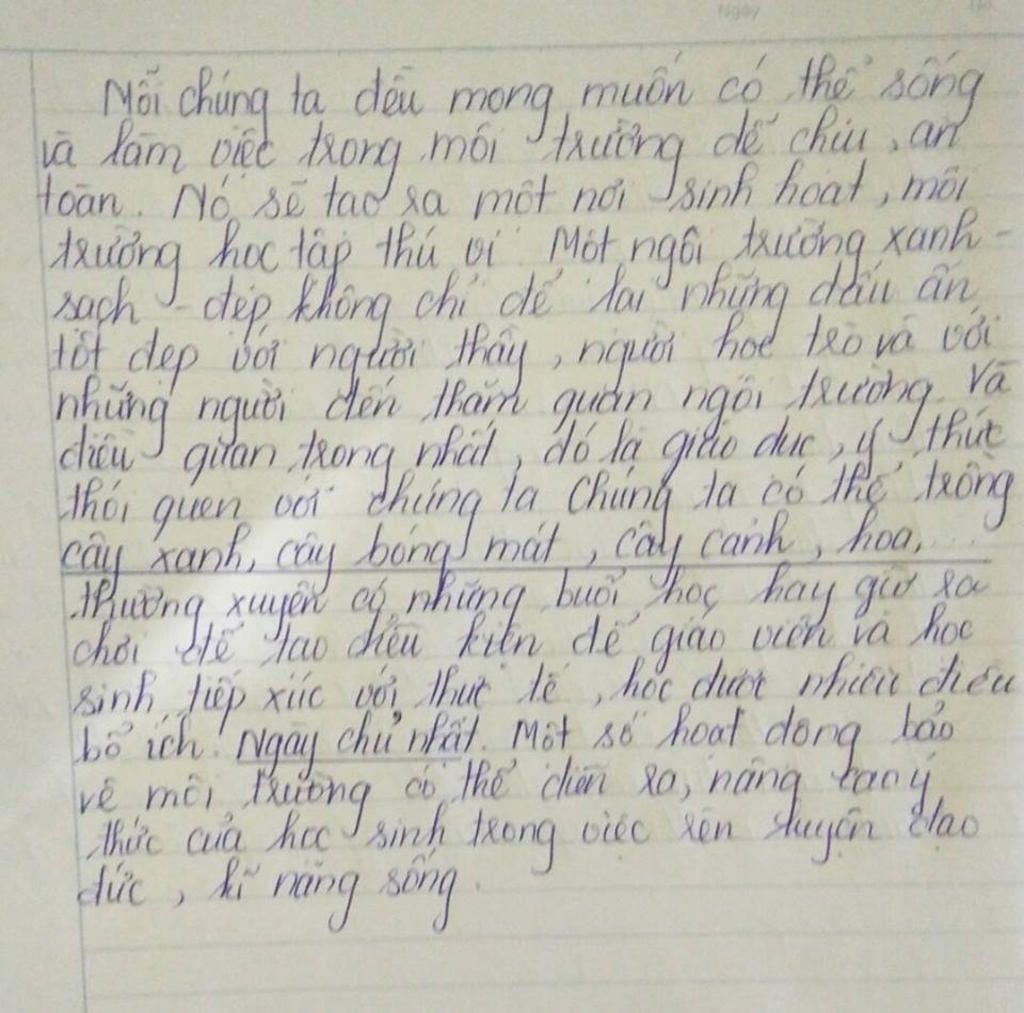 Ngày
Mỗi chúng ta đều mong muốn có thể sống
và làm việc trong môi trường dễ chịu, an
toàn. Nó sẽ tạo ra một nơi sinh hoạt, môi
trường học tập thú vị. Một ngôi trường xanh -
sạch - đẹp không chỉ để lại những dấu ấn
tốt đẹp với người thầy, người học trò và với
những người đến thăm quan ngôi trường. Và
điều quan trọng nhất, đó là giáo dục, ý thức
thói quen với chúng ta Chúng ta có thể trồng
cây xanh, cây bóng mát, cây cảnh, hoa,...
thường xuyên có những buổi học hay giờ ra
chơi để tạo điều kiện để giáo viên và học
sinh tiếp xúc với thực tế, học được nhiều điều
bổ ích. Ngày chủ nhật. Một số hoạt động bảo
vệ môi trường có thể diễn ra, nâng cao ý
thức của học sinh trong việc rèn luyện đạo
đức, kĩ năng sống.